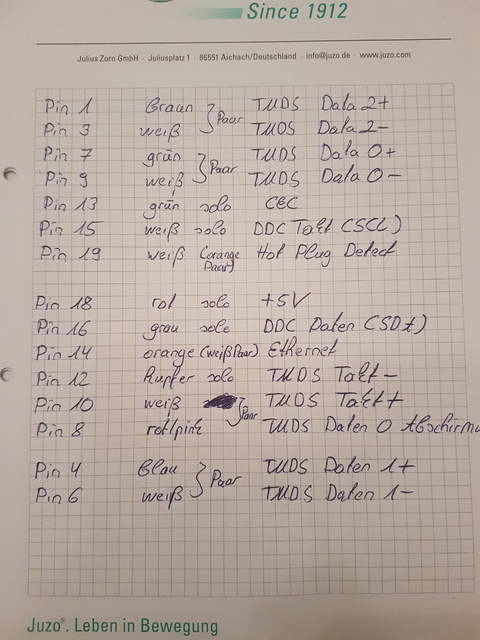 Since 1912
Julius Zorn GmbH · Juliusplatz 1 · 86551 Aichach/Deutschland · info@juzo.de · www.juzo.com
Pin 1 Braun } Paar TMDS Data 2+
Pin 3 weiß TMDS Data 2-
Pin 7 grün } Paar TMDS Data 0+
Pin 9 weiß TMDS Data 0-
Pin 13 grün solo CEC
Pin 15 weiß solo DDC Takt (SCL)
Pin 19 weiß (orange Paar) Hot Plug Detect
Pin 18 rot solo +5V
Pin 16 grau solo DDC Daten (SDA)
Pin 14 orange (weiß Paar) Ethernet
Pin 12 Kupfer solo TMDS Takt-
Pin 10 weiß } Paar TMDS Takt+
Pin 8 rot/pink TMDS Daten 0 Abschirmu
Pin 4 Blau } Paar TMDS Daten 1+
Pin 6 weiß TMDS Daten 1-
Juzo®. Leben in Bewegung